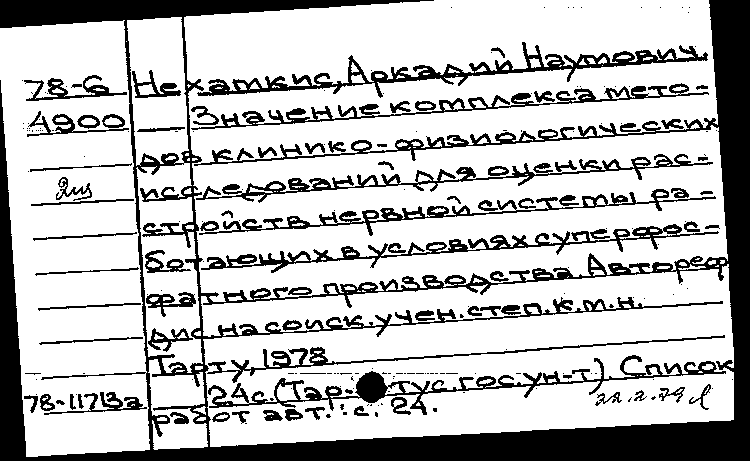 78-6 Нехамкис, Аркадий Наумович.
4900 Значение комплекса мето-
дов клинико-физиологических
2из исследований для оценки рас-
стройств нервной системы ра-
ботающих в условиях суперфос-
фатного производства. Автореф.
дис. на соиск. учен. степ. к.м.н.
Тарту, 1978.
24с. (Тар- тус. гос. ун-т). Список
78-11713а работ авт.: с. 24.
22.2.79